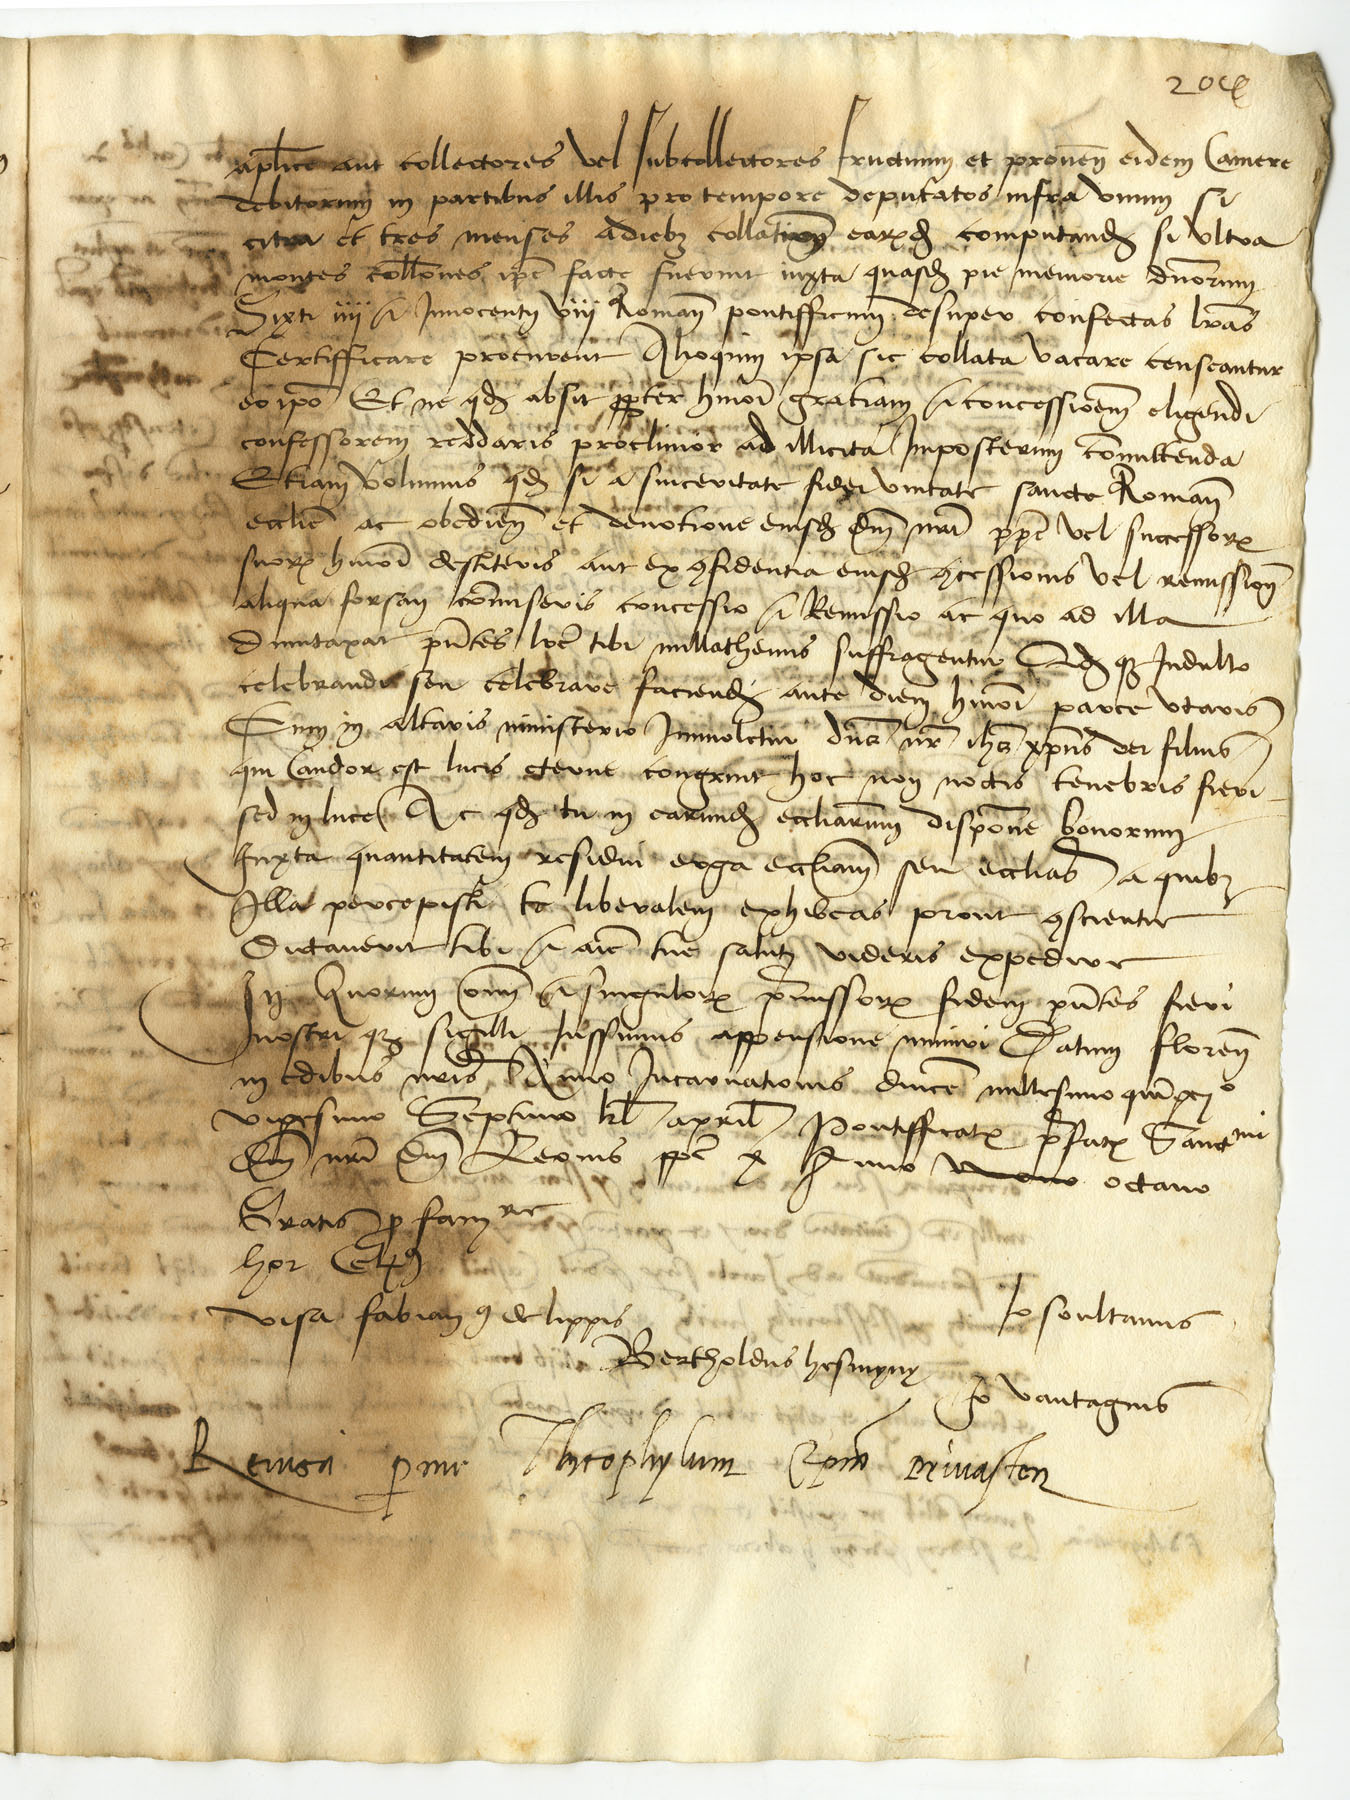 aplice aut collectores vel subcollectores fructuum et proven eidem Camere
debitorum in partibus illis pro tempore deputatos infra unum si
citra et tres menses a dieb collationum earund computand si ultra
montes collones ipe facte fuerint iuxta quasd pie memorie dnorum
Sixti iiii et Innocentij viij Roman pontifficum desuper confectas lras
Certifficare procurent Alioquin ipsa sic collata vacare censeantur
eo ipo Et ne qd absit propter hmoi gratiam et concessionem eligendi
confessorem reddaris proclinior ad illicita Imposterum committenda
Etiam Volumus qd si a sinceritate fidei unitate sancte Roman
ecclie ac obedien et devotione eiusd Dni nri ppe vel successorx
suorx hmoi destiteris aut ex confidentia eiusd concessionis vel remission
aliqua forsan comiseris concessio et Remissio ac quo ad illa
Dumtaxat pntes lre tibi nullathenus suffragentur Qd qz Indulto
celebrandi seu celebrare faciendi ante diem hmoi parce utaris
Cum in altaris ministerio Immoletur dns nr ihs xpus dei filius
qui Candor est lucis eterne congruit hoc non noctis tenebris fieri
sed in luce Ac qd tu in earund eccliarum dispone bonorum
Iuxta quantitatem residui erga eccliam seu ecclias a quib
Illa percepisti te liberalem exhibeas prout conscientie
Dictaverit tibi et aie tue saluti videris expedire
In Quorum omn et singulorx premissorx fidem pntes fieri
nostri qz sigilli Iussimus appensione muniri Datum floren
in edibus nris Anno Incarnationis dnice millesimo quingen°
vigesimo Septimo kl april Pontifficatx prefatx Sanctmi
Dni nri Dni Leonis ppe X Anno nono octavo
Gratis pro famre
hor
visa fabian de lippis
Io soultanus
Bertholdus
Io vantagius
Revisa per me Theophylum Epm